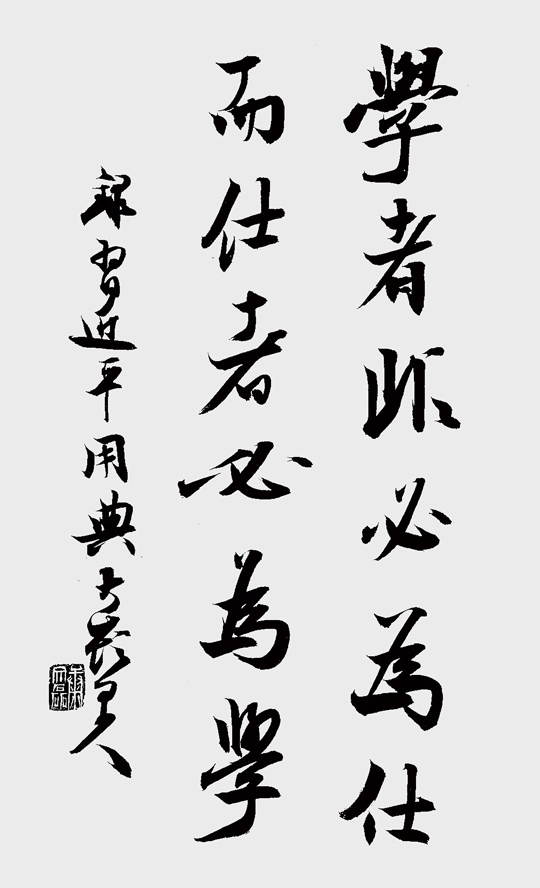 學者非必為仕
而仕者必為學
錄習近平用典